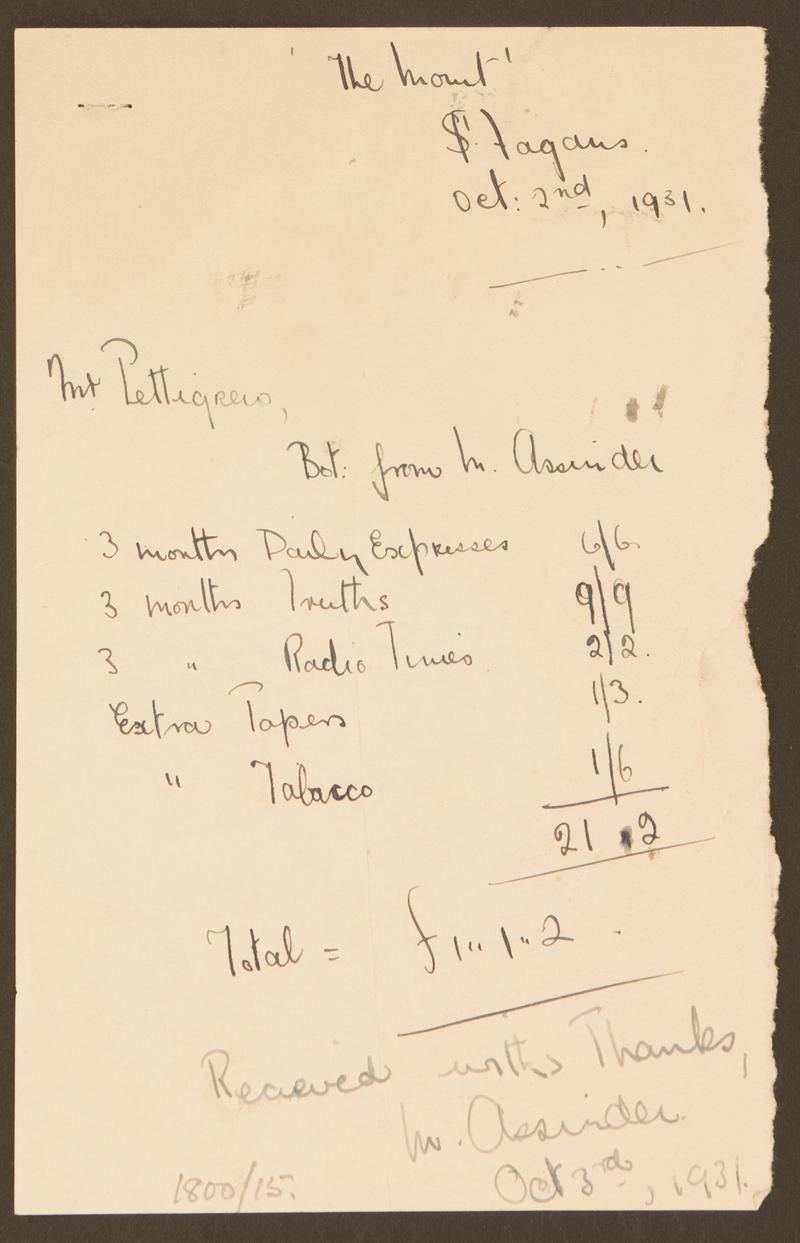 'The Mount'
St Fagans.
Oct: 2nd, 1931.
Mr Pettigrew,
Bot: from M. Assinder
3 months Daily Expresses 6/6.
3 months Truths 9/9
3 " Radio Times 2/2.
Extra Papers 1/3.
" Tabacco 1/6
21.2
Total = £1"1"2.
Recieved with Thanks,
M. Assinder.
Oct 3rd, 1931.
1800/15.